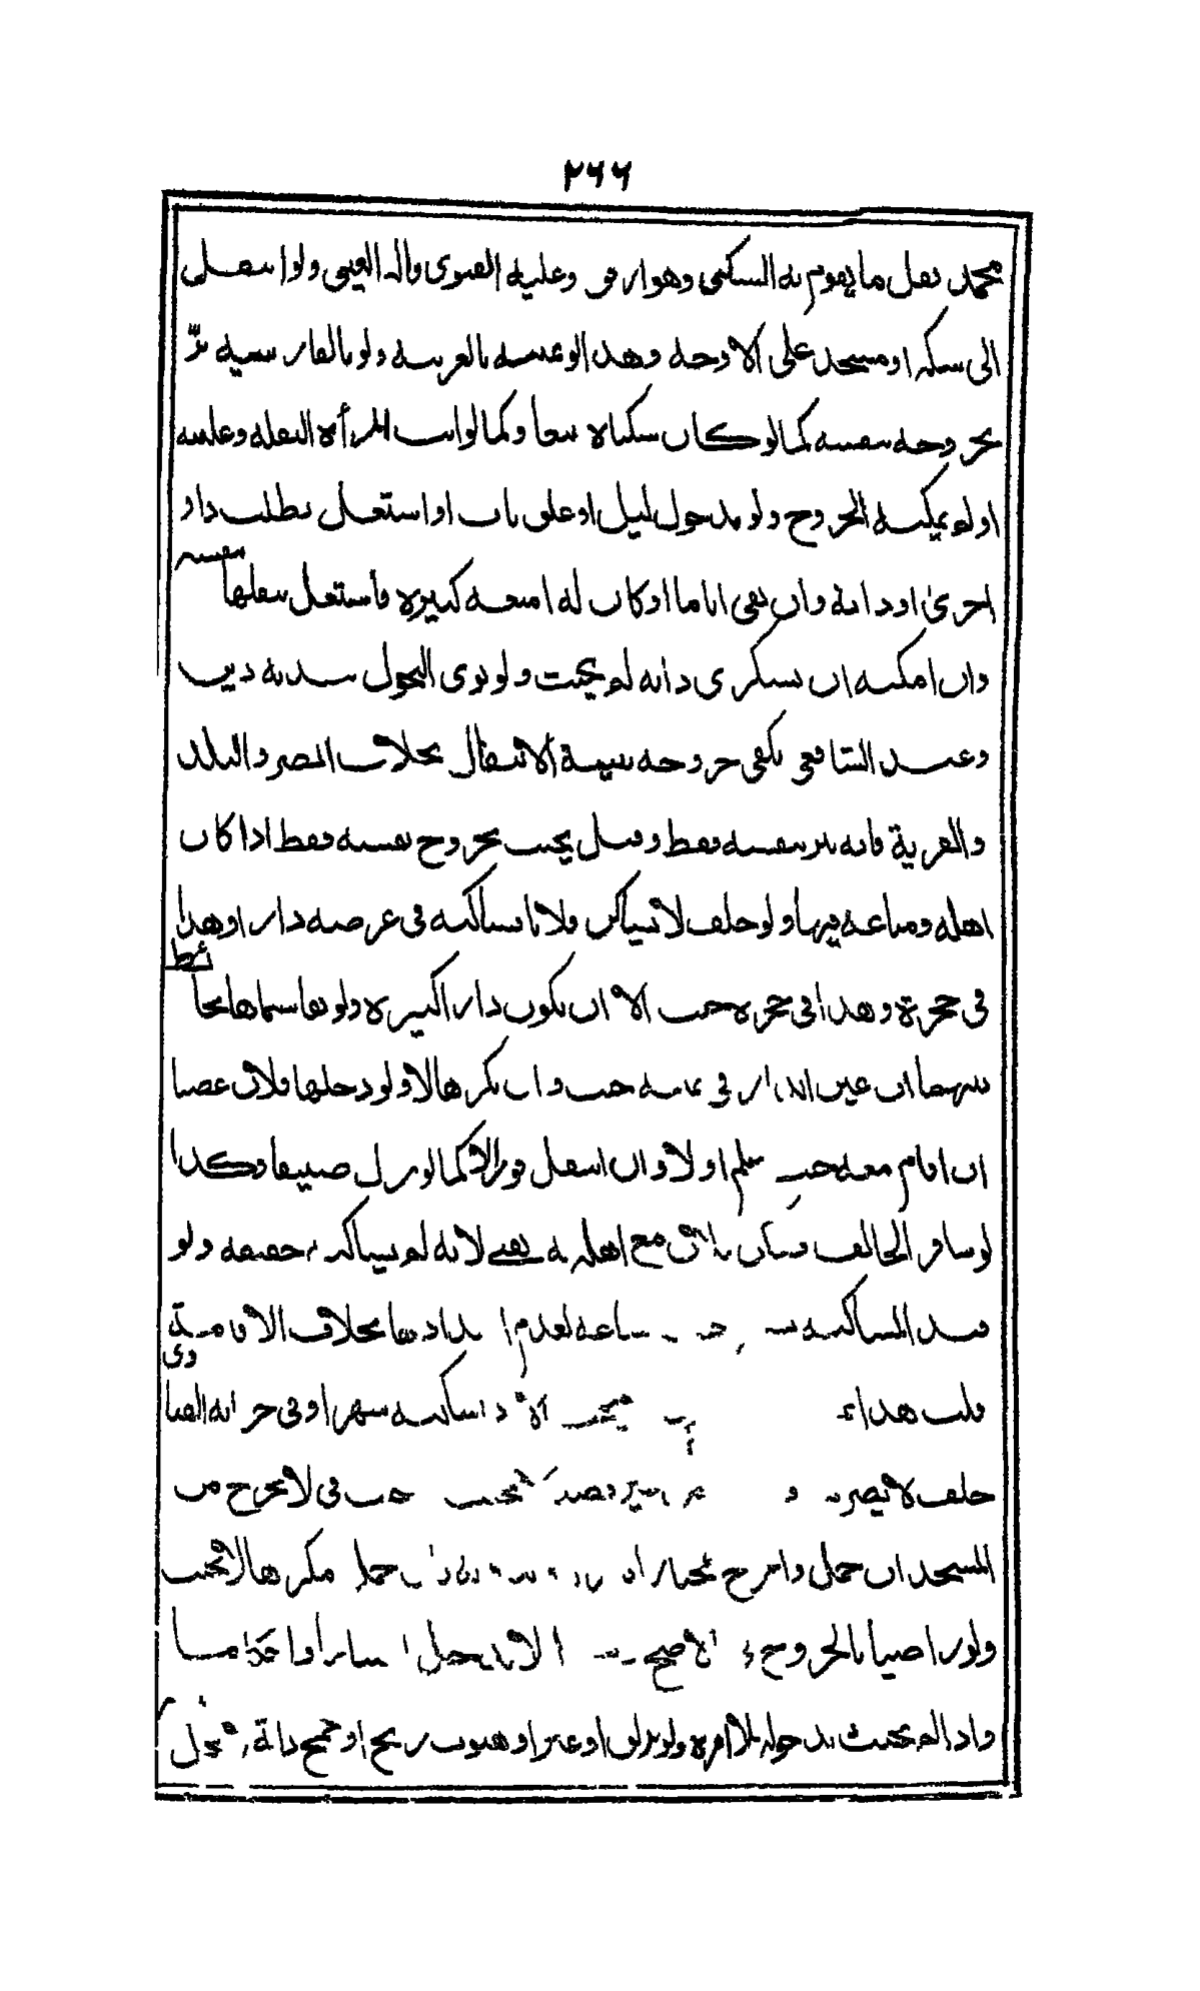 ٢٦٦
محمد نقل ما يقوم به السكنى وهو ارفق وعليه الفتوى قاله العيني ولو انتقل
الى سكة او مسجد على الاوجه وهذا لو يمينه بالعربية ولو بالفارسية برّ
بخروجه بنفسه كما لو كان سكناه تبعا وكما لو ابت المرأة النقلة وغلبته
او لم يمكنه الخروج ولو بدخول ليل او غلق باب او اشتغل بطلب دار
اخرى او دابة وان بقي اياما او كان له امتعة كثيرة فاشتغل بنقلها بنفسه
وان امكنه ان يستكري دابة لم يحنث ولو نوى التحول ببدنه دين
وعند الشافعي يكفي خروجه بنية الانتقال بخلاف المصر والبلد
والقرية فانه يبر بنفسه فقط وقيل يحنث بخروج نفسه فقط اذا كان
اهله ومتاعه فيها ولو حلف لا يساكن فلانا فساكنه في عرصة دار او هذا
في حجرة وهذا في حجرة حنث الا ان تكون دارا كبيرة ولو تقاسماها بحائط
بينهما ان عين الدار في يمينه حنث وان نكرها لا ولو دخلها فلان غصبا
ان اقام معه حنث علم او لا وان انتقل فورا لا كما لو نزل ضيفا وكذا
لو سافر الحالف فسكن فلان مع اهله به يفتى لانه لم يساكنه حقيقة ولو
قيد المساكنة ساعة لعدم امتدادها بخلاف الاقامة
قلت هذا ساكنه شهرا وفي خزانة الفتاوى
حلف لا يضر حنث في لا يخرج من
المسجد ان حمل واخرج مختارا حمل مكرها لا يحنث
ولو راضيا بالخروج الاصح
واذا لم يحنث بدخوله بلا امره ولو بزلق او عثر او هبوب ريح او جمح دابة